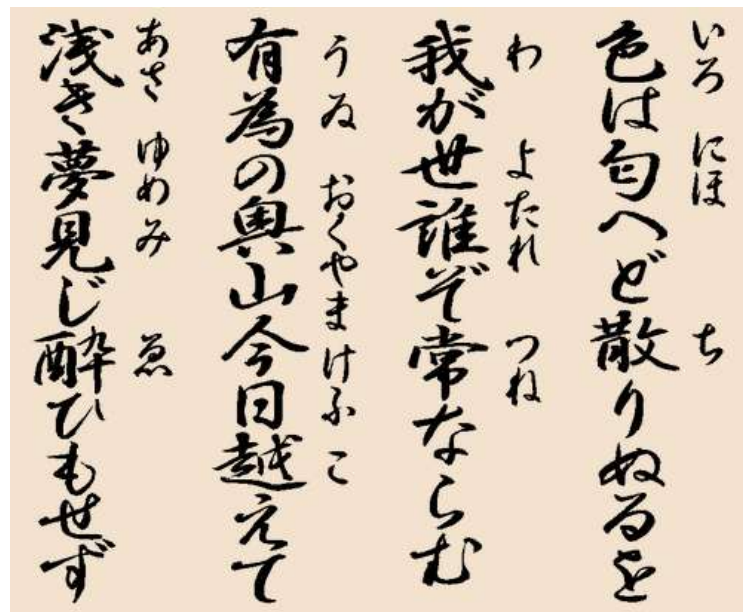 いろ にほ ち
色は匂へど散りぬるを
わ よたれ つね
我が世誰ぞ常ならむ
うゐ おくやまけふ こ
有為の奥山今日越えて
あさ ゆめみ ゑ
浅き夢見じ酔ひもせず